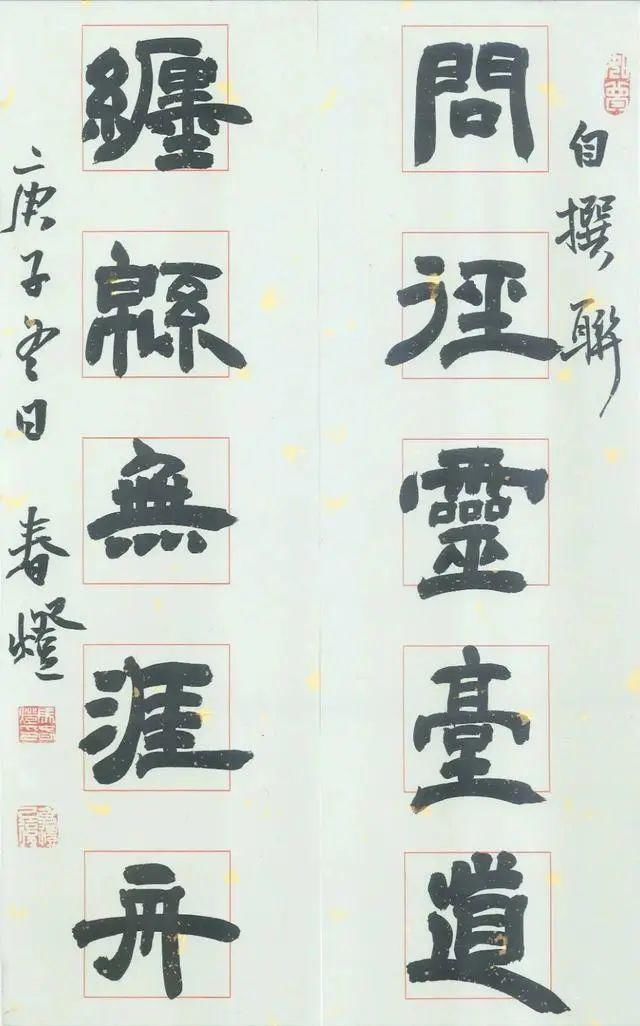 自撰聯
問徑靈臺道
纏緜無涯舟
庚子冬日 春燈